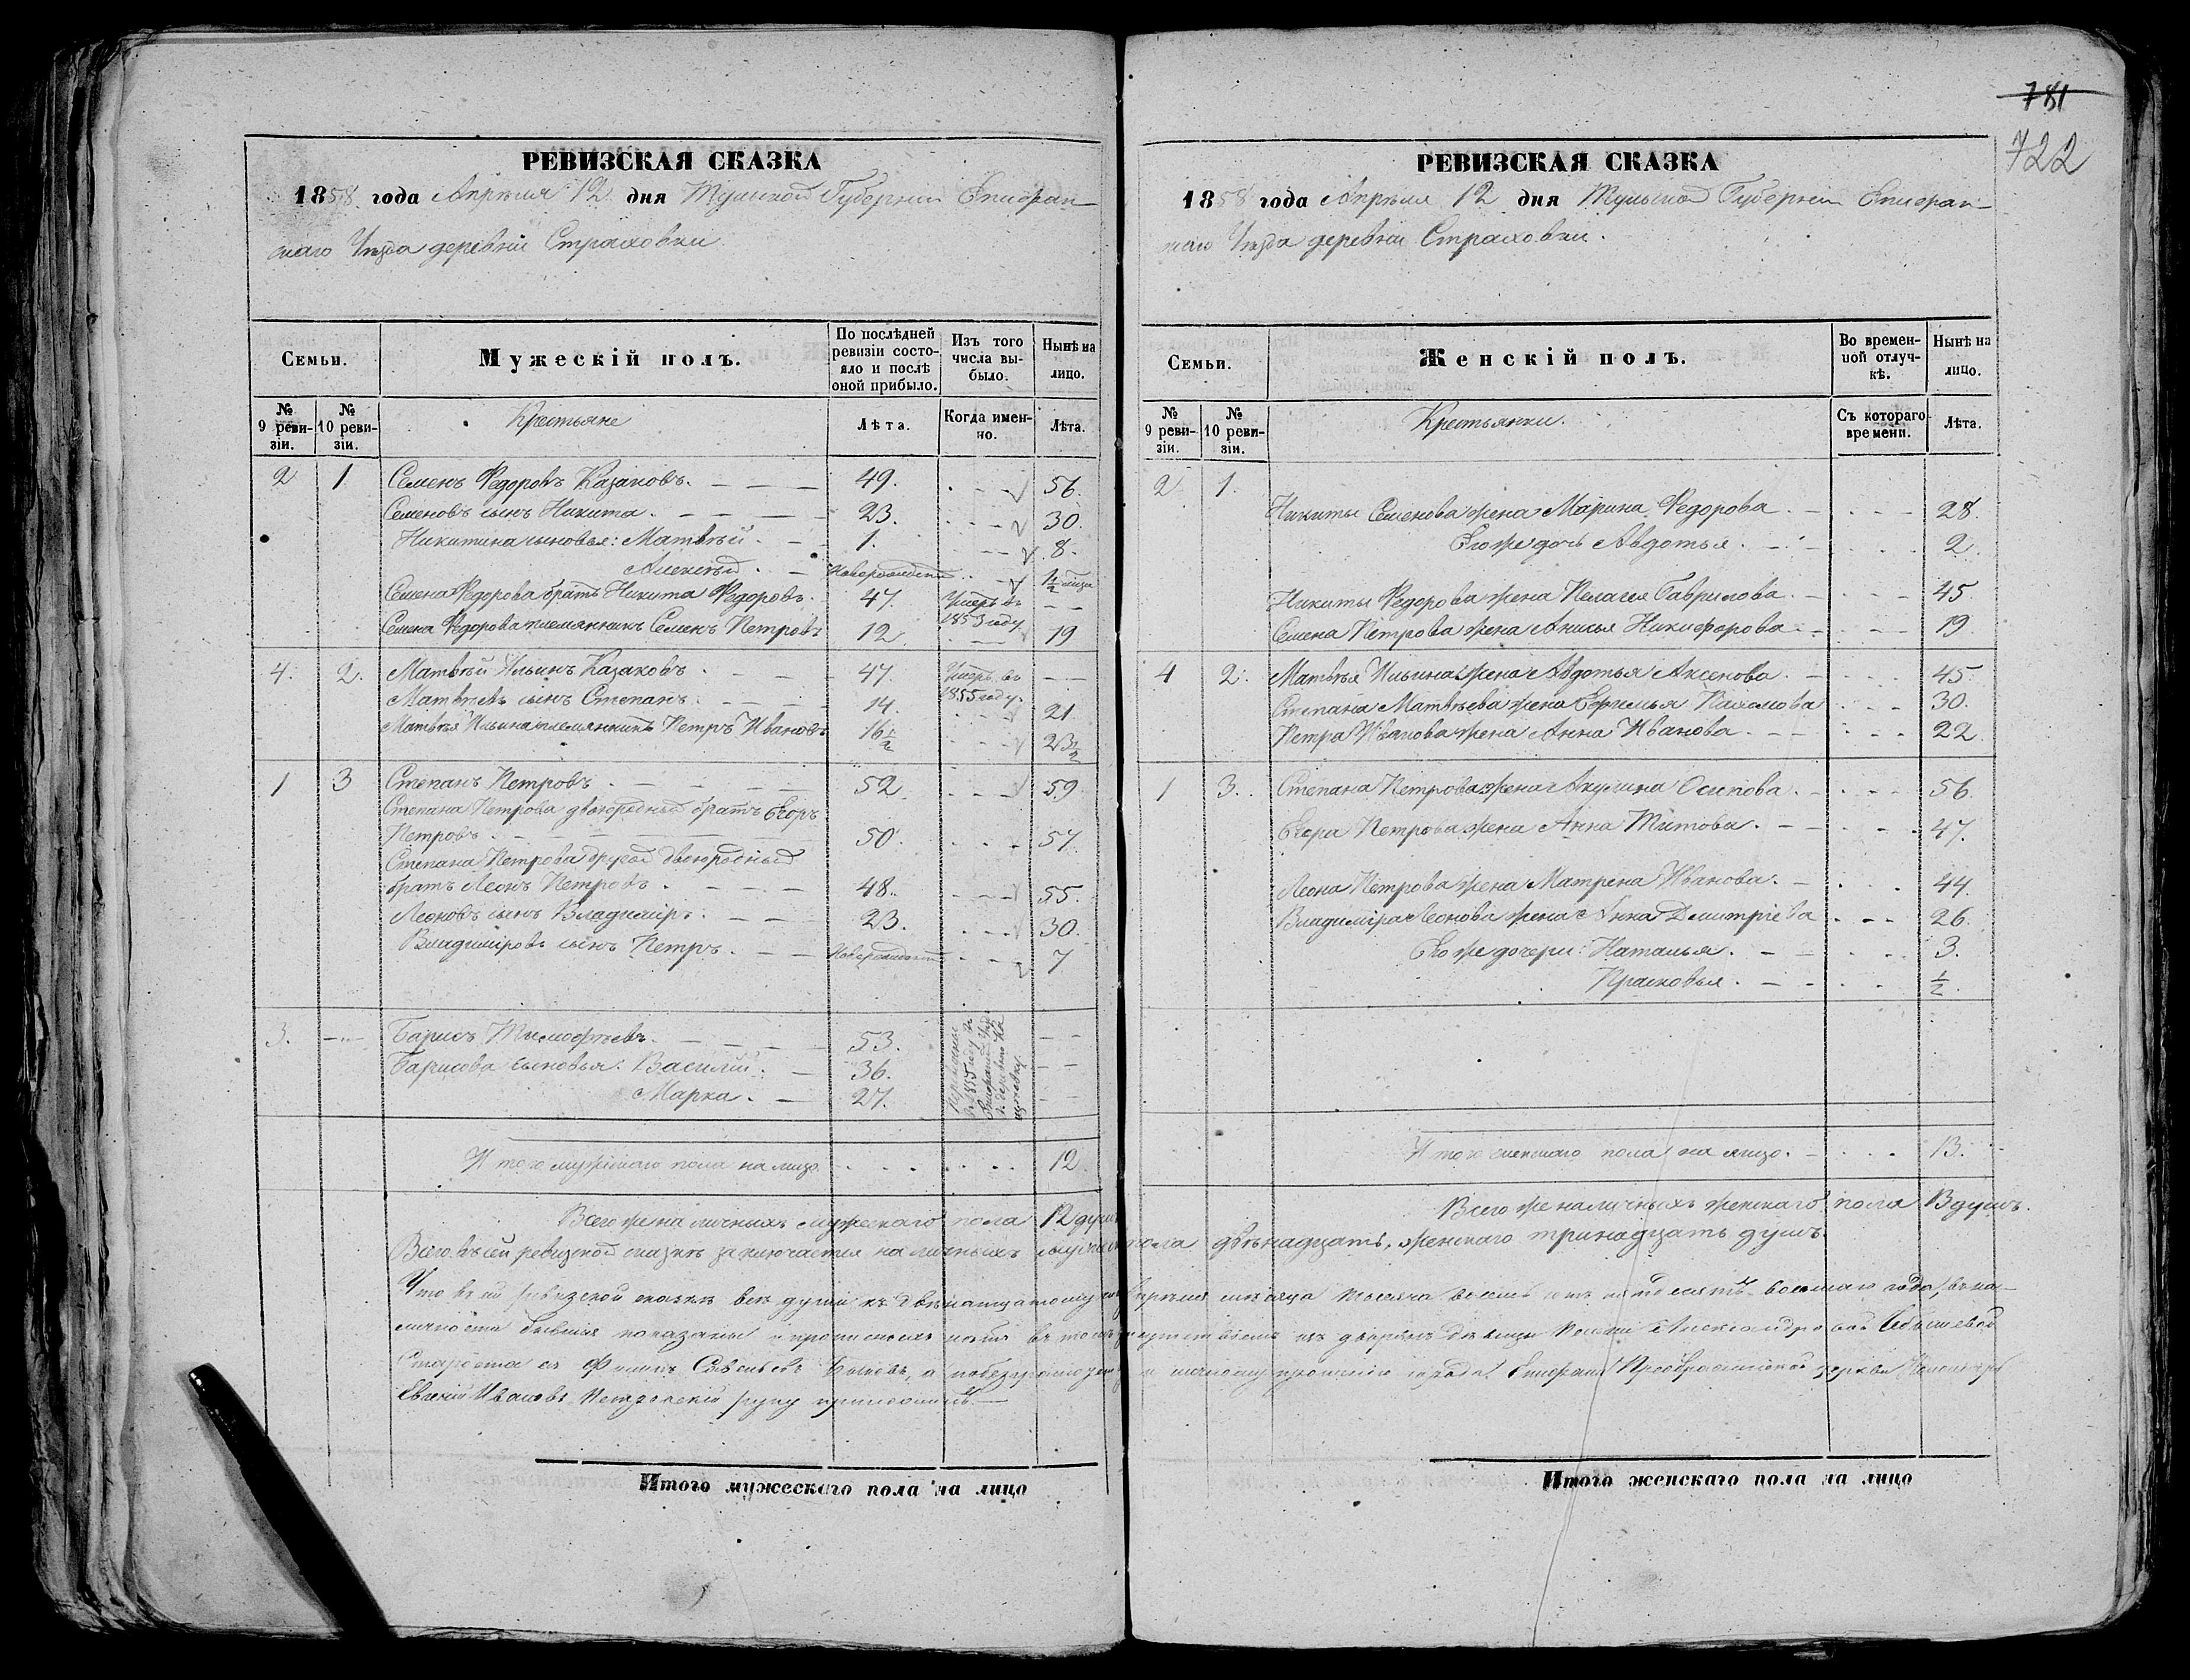 РЕВИЗСКАЯ СКАЗКА
1858 года Апрѣля 12 дня Тульской Губерніи Епифан-
скаго Уѣзда деревни Страховки.
Семьи. Мужескій полъ. По послѣдней ревизіи состояло и послѣ оной прибыло. Изъ того числа выбыло. Нынѣ на лицо.
№ 9 ревизіи. № 10 ревизіи. Крестьяне Лѣта. Когда именно. Лѣта.
2 1 Семенъ Федоровъ Казаковъ. 49. 56.
Семеновъ сынъ Никита. 23. 30.
Никитина сыновья: Матвѣй 1. 8.
Алексѣй. Новорожденъ 1/2
Семена Федорова братъ Никита Федоровъ. 47. Умеръ въ 1855 году
Семена Федорова племянникъ Семенъ Петровъ 12 19
4. 2. Матвѣй Ильинъ Казаковъ 47. Умеръ въ 1855 году.
Матвѣевъ сынъ Степанъ. 14. 21
Матвѣя Ильина племянникъ Петръ Ивановъ 16 1/2 23 1/2
1 3 Степанъ Петровъ 52. 59.
Степана Петрова двоюродный братъ Егоръ
Петровъ. 50. 57.
Степана Петрова другой двоюродный
братъ Леонъ Петровъ. 48. 55.
Леоновъ сынъ Владиміръ. 23. 30.
Владиміровъ сынъ Петръ. 7
3. Барисъ Тимофѣевъ. 53.
Барисова сыновья: Василій. 36.
Марка. 27.
въ 1855 году
Итого мужескаго пола на лицо. 12.
Всего же наличныхъ мужескаго пола 12 душъ
Всего въ сей ревизской сказкѣ заключается наличныхъ мужеска пола двѣнадцать, женскаго тринадцать душъ.
Что въ сей ревизской сказкѣ всѣ души къ двѣнадцатому Апрѣля мѣсяца тысяча восемь сотъ пятьдесятъ восьмаго года, въ на-
личности бывшія показаны и прописныхъ нѣтъ въ томъ
Староста
Евгеній Ивановъ Петровскій руку приложилъ.
Итого мужескаго пола на лицо
781
722
РЕВИЗСКАЯ СКАЗКА
1858 года Апрѣля 12 дня Тульской Губерніи Епифан-
скаго Уѣзда деревни Страховки.
Семьи. Женскій полъ. Во временной отлучкѣ. Нынѣ на лицо.
№ 9 ревизіи. № 10 ревизіи. Крестьянки. Съ котораго времени. Лѣта.
2 1.
Никиты Семенова жена Марина Федорова 28.
Его же дочь Авдотья. 2.
Никиты Федорова жена Пелагея Гаврилова. 45
Семена Петрова жена Анисья Никифорова 19
4 2. Матвѣя Ильина жена Авдотья Аксенова. 45
Степана Матвѣева жена Ефимья Пахомова 30.
Петра Иванова жена Анна Иванова. 22.
1 3. Степана Петрова жена Акулина Осипова. 56.
Егора Петрова жена Анна Титова. 47.
Леона Петрова жена Матрена Иванова. 44.
Владиміра Леонова жена Анна Дмитріева 26.
Его же дочери: Наталья. 3.
Прасковья. 1/2.
Итого женскаго пола на лицо. 13.
Всего же наличныхъ женскаго пола 13 душъ.
Итого женскаго пола на лицо